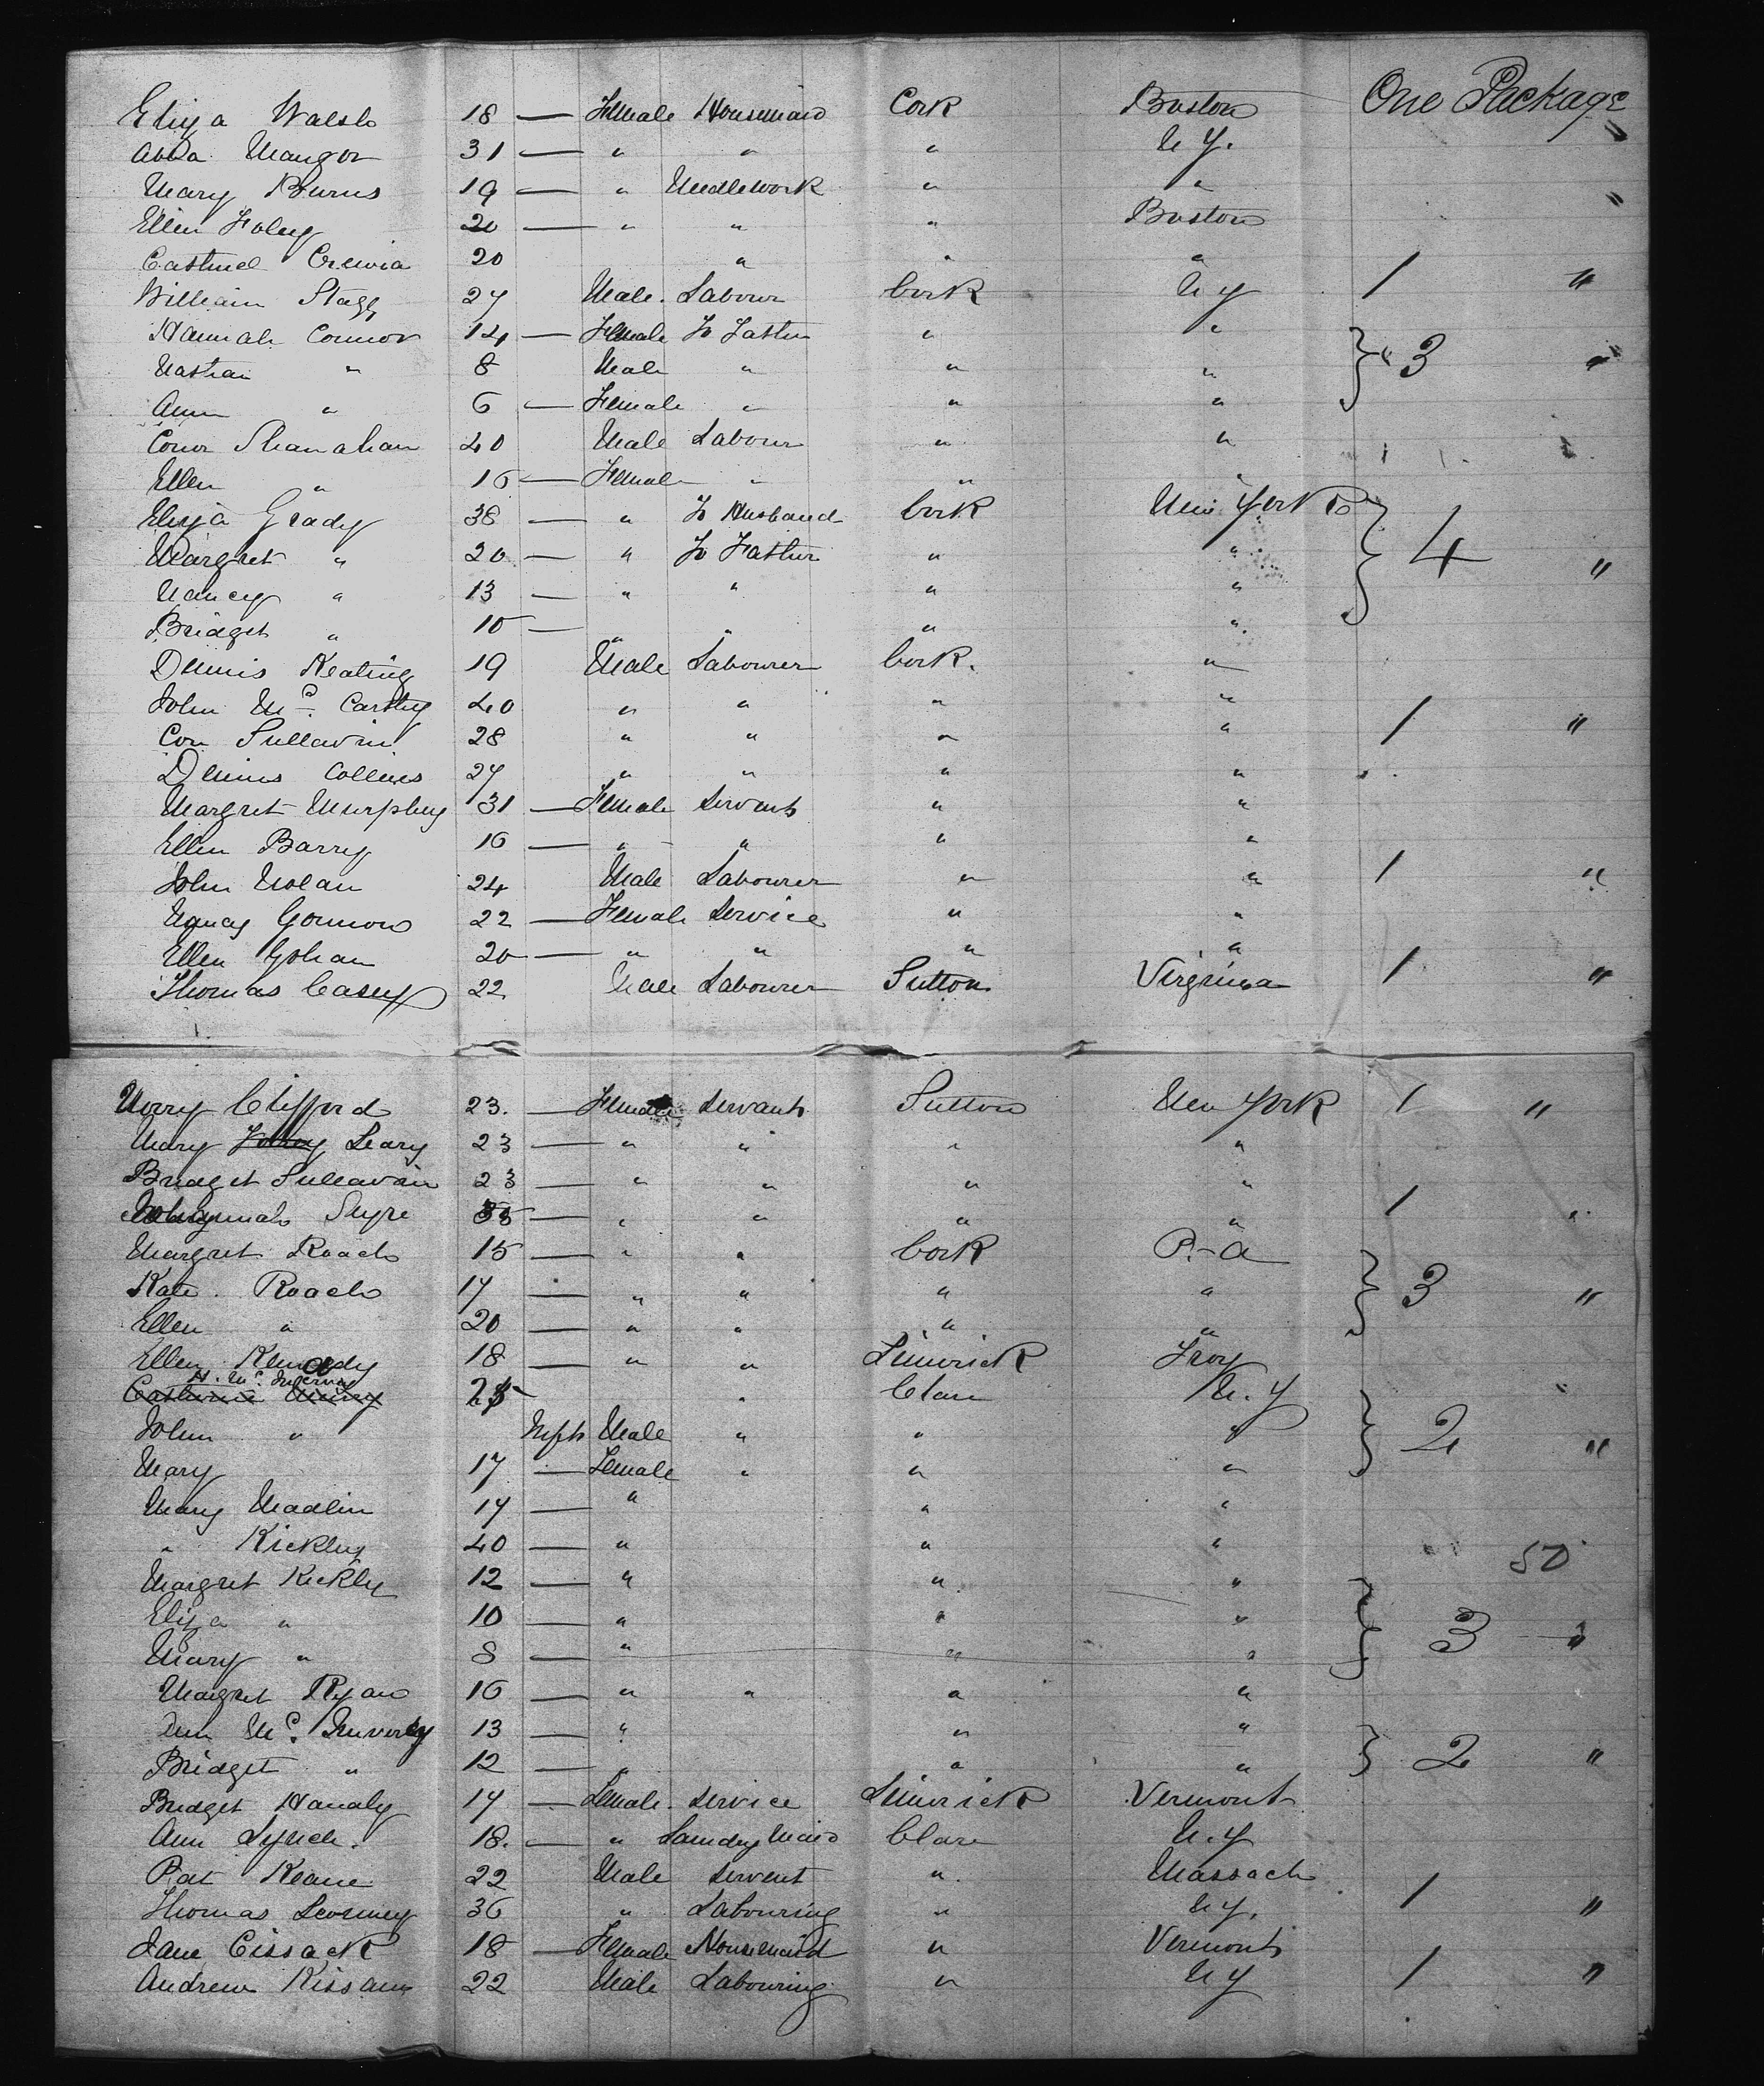 Eliza Walsh 18 — Female Housemaid Cork Boston One Package
Abba Mangon 31 — " " " N Y. "
Mary Burns 19 — " Needlework " " "
Ellen Foley 20 — " " " Boston
20 " " "
William Stagg 27 Male. Labour Cork N Y 1 "
Hannah Connor 14 — Female To Father " " } " 3 "
Nathan " 8 Male " " "
Ann " 6 — Female " " "
Conor Shanahan 40 Male Labour " "
Ellen " 16 — Female " " "
Eliza Grady 38 — " To Husband Cork New York } 4 "
Margret " 20 — " To Father " "
Nancy " 13 — " " " "
Bridget " 10 — " " " "
Dennis Keating 19 Male Labourer Cork. "
John Mc. Carthy 40 " " " "
Con Sullavin 28 " " " " 1 "
Dennis Collins 27 " " " "
Margret Murphy 31 — Female Servant " "
Ellen Barry 16 — " " " "
John Nolan 24 Male Labourer " " 1 "
Nancy Gormon 22 — Female Service " "
Ellen 20 — " " " "
Thomas Casey 22 Male Labourer Sutton Virginia 1 "
Merry Clifford 23. — Female Servant Sutton New York 1 "
Mary Leary 23 — " " " "
Bridget Sullavin 23 — " " " "
— " " " " 1 "
Margret Roach 15 — " " Cork P.-a } 3 "
Kate. Roach 17 — " " " "
Ellen " 20 — " " " "
Ellen Kennedy 18 — " " Limerick Troy
H. Mc.
" Clare N. Y } 2 "
John " Infts Male " " "
Mary 17 — Female " " "
Mary Madlin 17 — " " "
" Kickley 40 — " " " 50
Margret Kickley 12 — " " " } 3 "
Eliza " 10 — " " "
Mary " 8 — " " "
Margret Ryan 16 — " " " "
Mc. 13 — " " " } 2 "
Bridget " 12 — " " "
Bridget Hanaly 17 — Female Service Limerick Vermont
Ann Lynch. 18. — " Laundry Maid Clare N. Y
Pat Keane 22 Male Servent " Massach
Thomas 36 " Labouring " N Y. 1 "
Jane Cissack 18 — Female Housemaid " Vermont
Andrew Kissane 22 Male Labouring " N Y 1 "